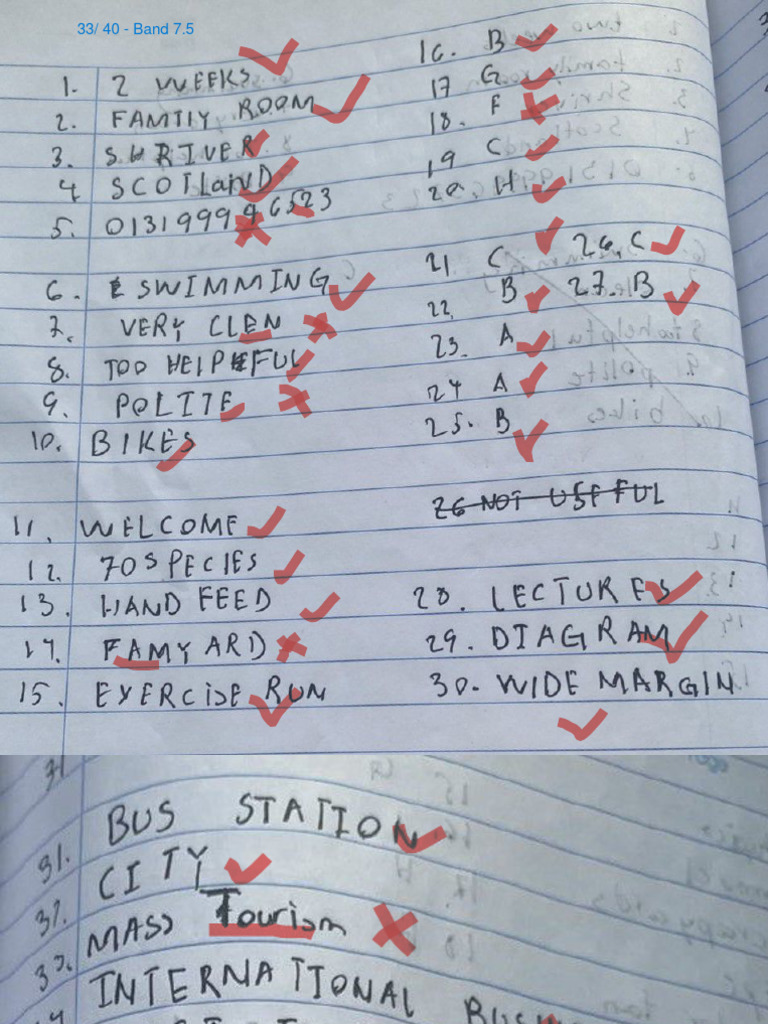 33/ 40 - Band 7.5
1. 2 WEEKS
2. FAMTLY ROOM
3. SHRIVER
4 SCOTLAND
5. 0131999 46523
6. SWIMMING
7. VERY CLEN
8. TOO HELPFUL
9. POLITE
10. BIKES
11. WELCOME
12. 70 SPECIES
13. HAND FEED
14. FAMYARD
15. EXERCISE RUN
16. B
17 G
18. F
19 C
20. H
21 C 26. C
22. B 27. B
23. A
24 A
25. B
26 NOT USEFUL
28. LECTURES
29. DIAGRAM
30. WIDE MARGIN
31. BUS STATION
32. CITY
33. MASS Tourism
INTERNATIONAL